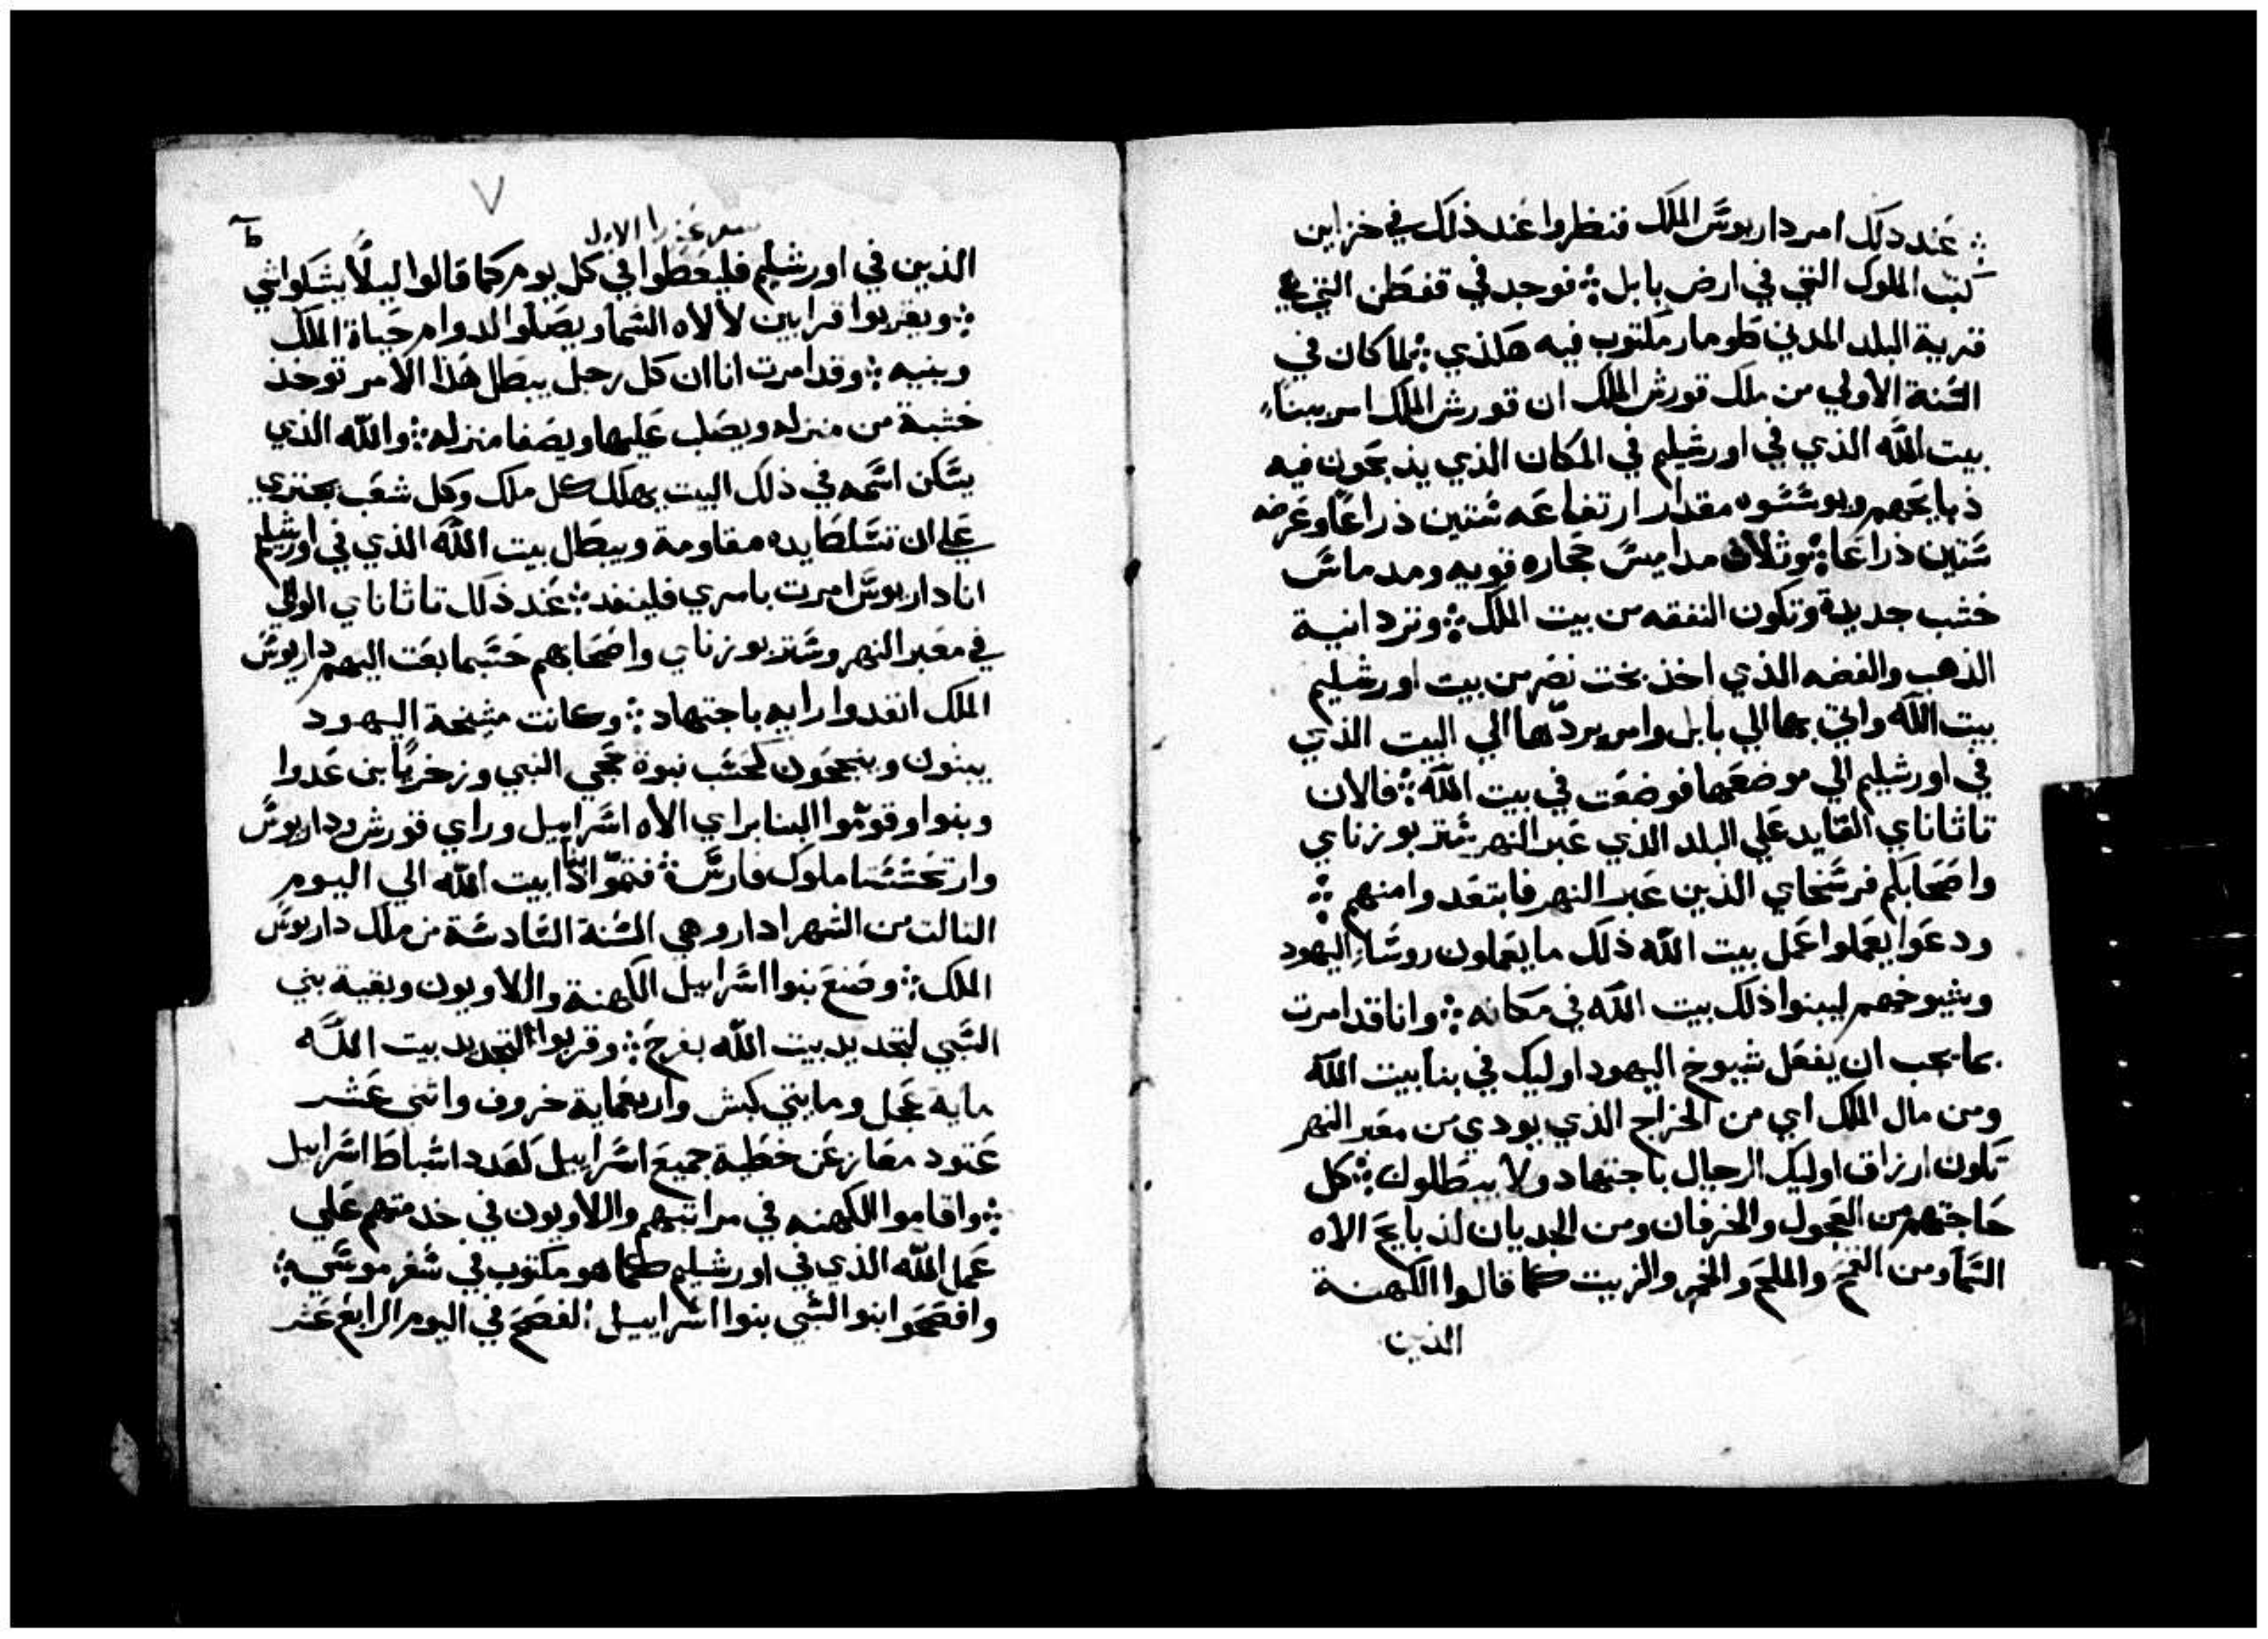 ؞ عند دلك امر داريوس الملك فنظروا عند ذلك في خزاين
كتب الملوك التي في ارض بابل ؞ فوجد في قفطن التي هي
قرية البلد المدني طومار مكتوب فيه هكذي ؞ لما كان في
السنة الاولي من ملك قورش الملك ان قورش الملك امر ببناء
بيت الله الذي في اورشليم في المكان الذي يذبحون فيه
ذبايحهم ويوسسوه مقدار ارتفاعه ستين ذراعا وعرضه
ستين ذراعا ؞ وثلاث مداميس حجاره قويه ومدماس
خشب جديدة وتكون النفقه من بيت الملك ؞ وترد انية
الذهب والفضه الذي اخذ بخت نصر من بيت اورشليم
بيت الله واتي بها الي بابل وامر بردها الي البيت الذي
في اورشليم الي موضعها فوضعت في بيت الله ؞ فالان
تاثاناي القايد علي البلد الذي عبر النهر شتر بوزناي
واصحابكم فرسخاي الذين عبر النهر فابتعدوا منهم ؞
ودعوا يعملوا عمل بيت الله ذلك ما يعملون روساء اليهود
وشيوخهم ليبنوا ذلك بيت الله في مكانه ؞ وانا قد امرت
بما يجب ان يفعل شيوخ اليهود اوليك في بنا بيت الله
ومن مال الملك اي من الخراج الذي يودي من معبر النهر
تكون ارزاق اوليك الرجال باجتهاد ولا يبطلوك ؞ كل
حاجتهم من العجول والخرفان ومن الجديان لذبايح الاه
السما ومن القمح والملح والخمر والزيت كما قالوا الكهنة
الذين
٧
سفر عزرا الاول
الذين في اورشليم فليعطوا في كل يوم كما قالوا ليلا يشكوا شي
؞ ويقربوا قرابين لالاه السما ويصلوا لدوام حياة الملك
وبنيه ؞ وقد امرت انا ان كل رجل يبطل هذا الامر توخذ
خشبة من منزله ويصلب عليها ويصفا منزله ؞ والله الذي
يسكن اسمه في ذلك البيت يهلك كل ملك وكل شعب يجتري
علي ان تسلط ايده مقاومة ويبطل بيت الله الذي في اورشليم
انا داريوس امرت بامري فلينفد ؞ عند ذلك تاثاناي الوالي
في معبر النهر وشتر بوزناي واصحابهم حسبما بعت اليهم داريوس
الملك انفدوا رايه باجتهاد ؞ وكانت مشيخة اليهود
يبنون وينجحون كحسب نبوة حجي النبي وزخريا بن عدوا
وبنوا وقوموا البنا براي الاه اسراييل وراي قورش وداريوس
وارتحشستا ملوك فارس ؞ فتموا بنا اذا بيت الله الي اليوم
التالت من الشهر ادار وهي السنة السادسة من ملك داريوس
الملك ؞ وصنع بنوا اسراييل الكهنة واللاويون وبقية بني
السبي لتجديد بيت الله بفرح ؞ وقربوا لتجديد بيت الله
ماية عجل ومايتي كبش واربعماية خروف واثني عشر
عتود معاز عن خطية جميع اسراييل كعدد اسباط اسراييل
؞ واقاموا الكهنه في مراتبهم واللاويون في خدمتهم علي
عمل الله الذي في اورشليم كما هو مكتوب في سفر موسي ؞
وافصحوا بنوا السبي بنوا اسراييل الفصح في اليوم الرابع عشر